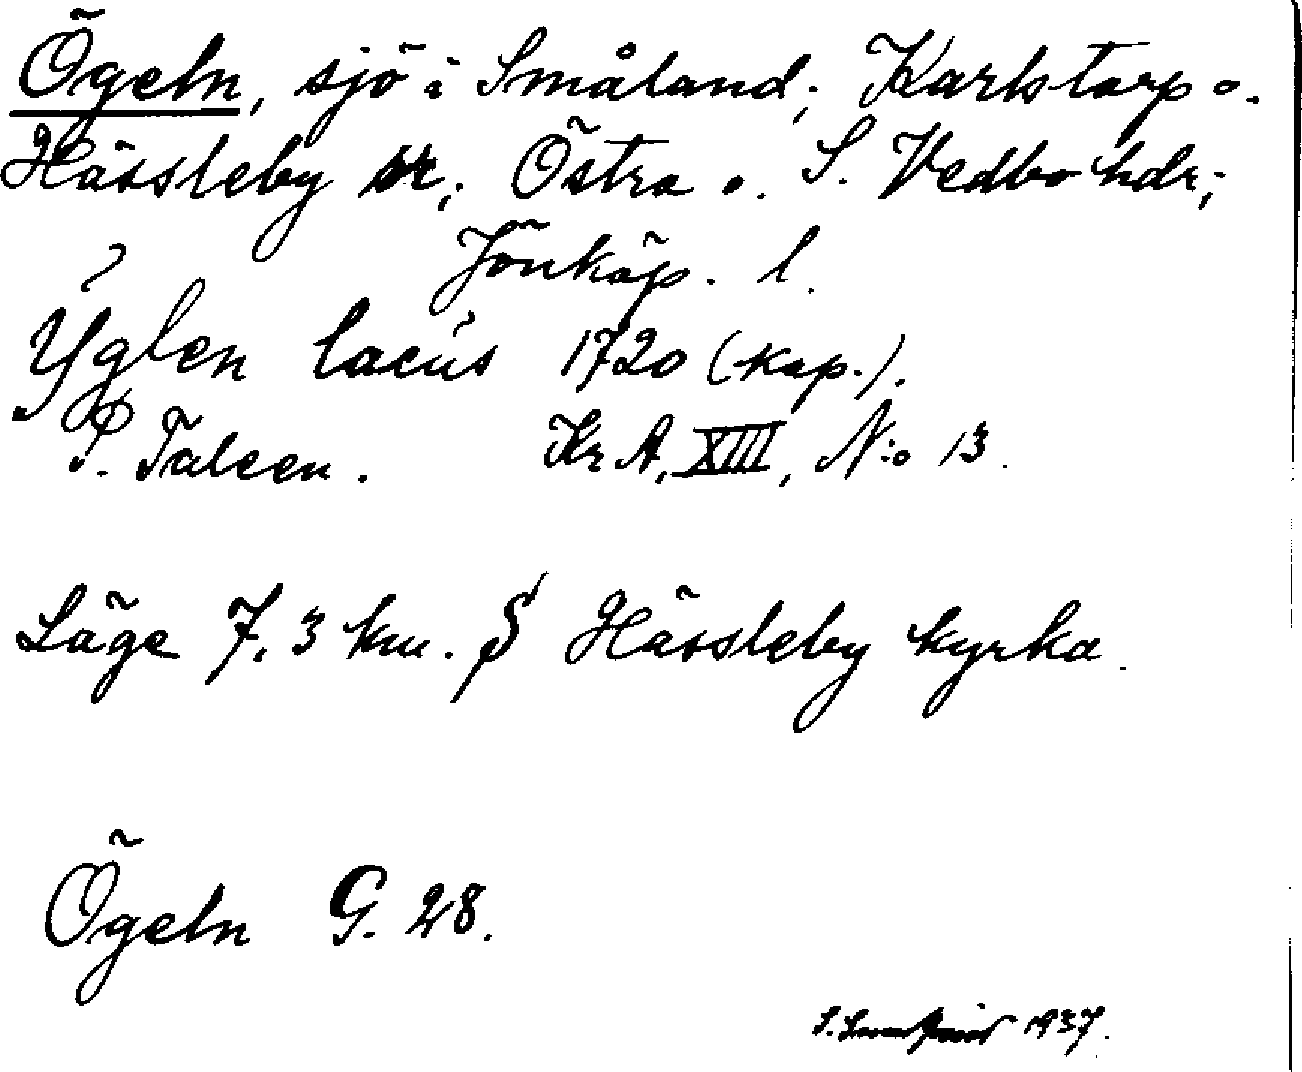 Ögeln, sjö i Småland; Karlstorp o.
Hässleby sr; Östra o. S. Vedbo hdr;
Jönköp. l.
?
Yglen lacus 1720 (kap.).
P. Taleen. Kr A, XIII, N:o 13.
Läge 7,3 km. S Hässleby kyrka.
Ögeln G. 28.
1937.